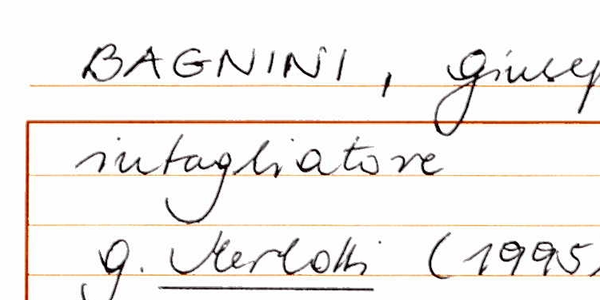 BAGNINI, Giusep
intagliatore
g. Merlotti (1995